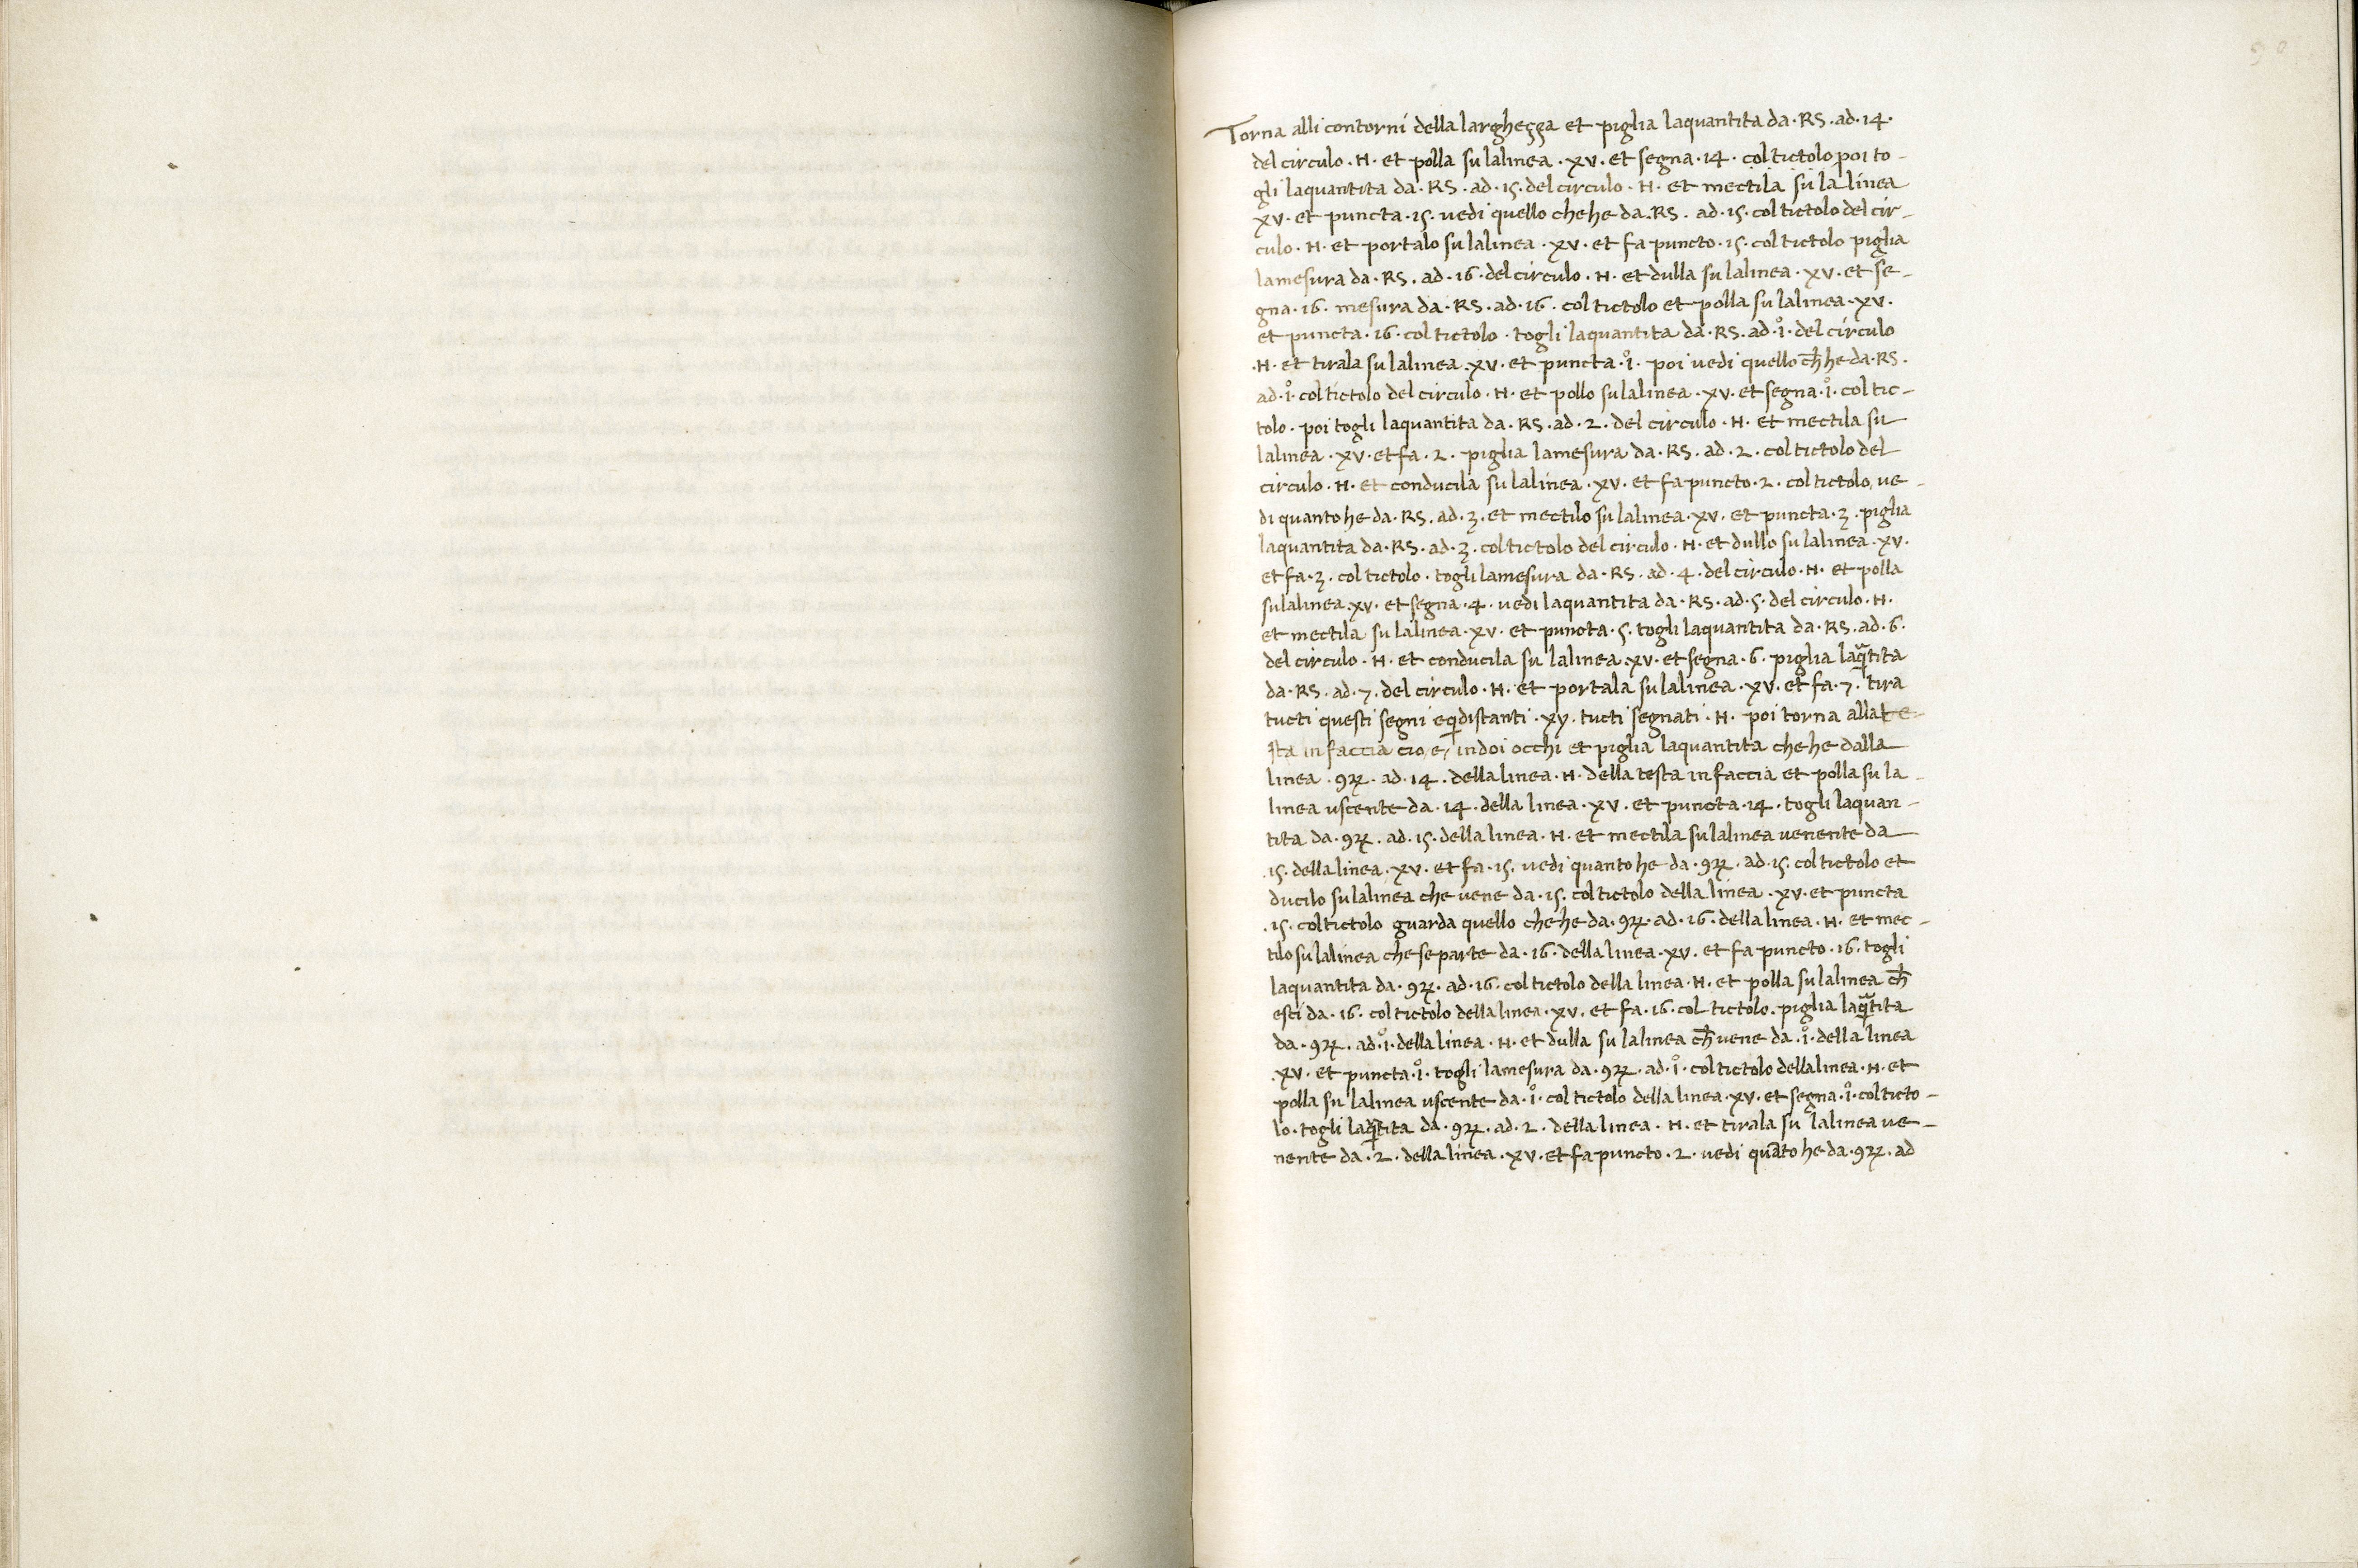 90
Torna alli contorni della largheçça et piglia laquantita da · RS · ad · 14 ·
del circulo · H · et polla su lalinea · xv · et segna · 14 · col tictolo poi to -
gli laquantita da · RS · ad · 15 · del circulo · H · et mectila su la linea
xv · et puncta · 15 · vedi quello che he da · RS · ad · 15 · col tictolo del cir -
culo · H · et portalo su lalinea · xv · et fa puncto · 15 · col tictolo piglia
lamesura da · RS · ad · 16 · del circulo · H · et dulla su lalinea · xv · et se -
gna · 16 · mesura da · RS · ad · 16 · col tictolo et polla su lalinea · xv ·
et puncta · 16 · col tictolo · togli laquantita da · RS · ad · i̊ · del circulo
· H · et tirala su lalinea · xv · et puncta · i̊ · poi vedi quello ch̄ he da · RS ·
ad · i̊ · col tictolo del circulo · H · et pollo su lalinea · xv · et segna · i̊ · col tic -
tolo · poi togli laquantita da · RS · ad · 2 · del circulo · H · et mectila su
lalinea · xv · et fa · 2 · piglia lamesura da · RS · ad · 2 · col tictolo del
circulo · H · et conducila su lalinea · xv · et fa puncto · 2 · col tictolo, ve -
di quanto he da · RS · ad · 3 · et mectilo su lalinea · xv · et puncta · 3 · piglia
laquantita da · RS · ad · 3 · col tictolo del circulo · H · et dullo su lalinea · xv ·
et fa · 3 · col tictolo · togli lamesura da · RS · ad · 4 · del circulo · H · et polla
su lalinea · xv · et segna · 4 · vedi laquantita da · RS · ad · 5 · del circulo · H ·
et mectila su lalinea · xv · et puncta · 5 · togli laquantita da · RS · ad · 6 ·
del circulo · H · et conducila su lalinea · xv · et segna · 6 · piglia laq̄tita
da · RS · ad · 7 · del circulo · H · et portala su lalinea · xv · et fa · 7 · tira
tucti questi segni eqdistanti · xy · tucti segnati · H · poi torna alla te -
sta in faccia cio, e, indoi occhi et piglia laquantita che he dalla
linea · 9ꝶ · ad · 14 · della linea · H · della testa in faccia et polla su la -
linea uscente da · 14 · della linea · xv · et puncta · 14 · togli laquan -
tita da · 9ꝶ · ad · 15 · della linea · H · et mectila su lalinea venente da
· 15 · della linea · xv · et fa · 15 · vedi quanto he da · 9ꝶ · ad · 15 · col tictolo et
ducilo su lalinea che vene da · 15 · col tictolo della linea · xv · et puncta
· 15 · col tictolo guarda quello che he da · 9ꝶ · ad · 16 · della linea · H · et mec -
tilo su lalinea che se parte da · 16 · della linea · xv · et fa puncto · 16 · togli
laquantita da · 9ꝶ · ad · 16 · col tictolo della linea · H · et polla su lalinea ch̄
esci da · 16 · col tictolo della linea · xv · et fa · 16 · col tictolo · piglia laq̄tita
da · 9ꝶ · ad · i̊ · della linea · H · et dulla su lalinea ch̄ vene da · i̊ · della linea
· xv · et puncta · i̊ · togli lamesura da · 9ꝶ · ad · i̊ · col tictolo dellalinea · H · et
polla su lalinea uscente da · i̊ · col tictolo della linea · xv · et segna · i̊ · col ticto -
lo · togli laq̄tita da · 9ꝶ · ad · 2 · della linea · H · et tirala su lalinea ve -
nente da · 2 · della linea · xv · et fa puncto · 2 · vedi quāto he da · 9ꝶ · ad